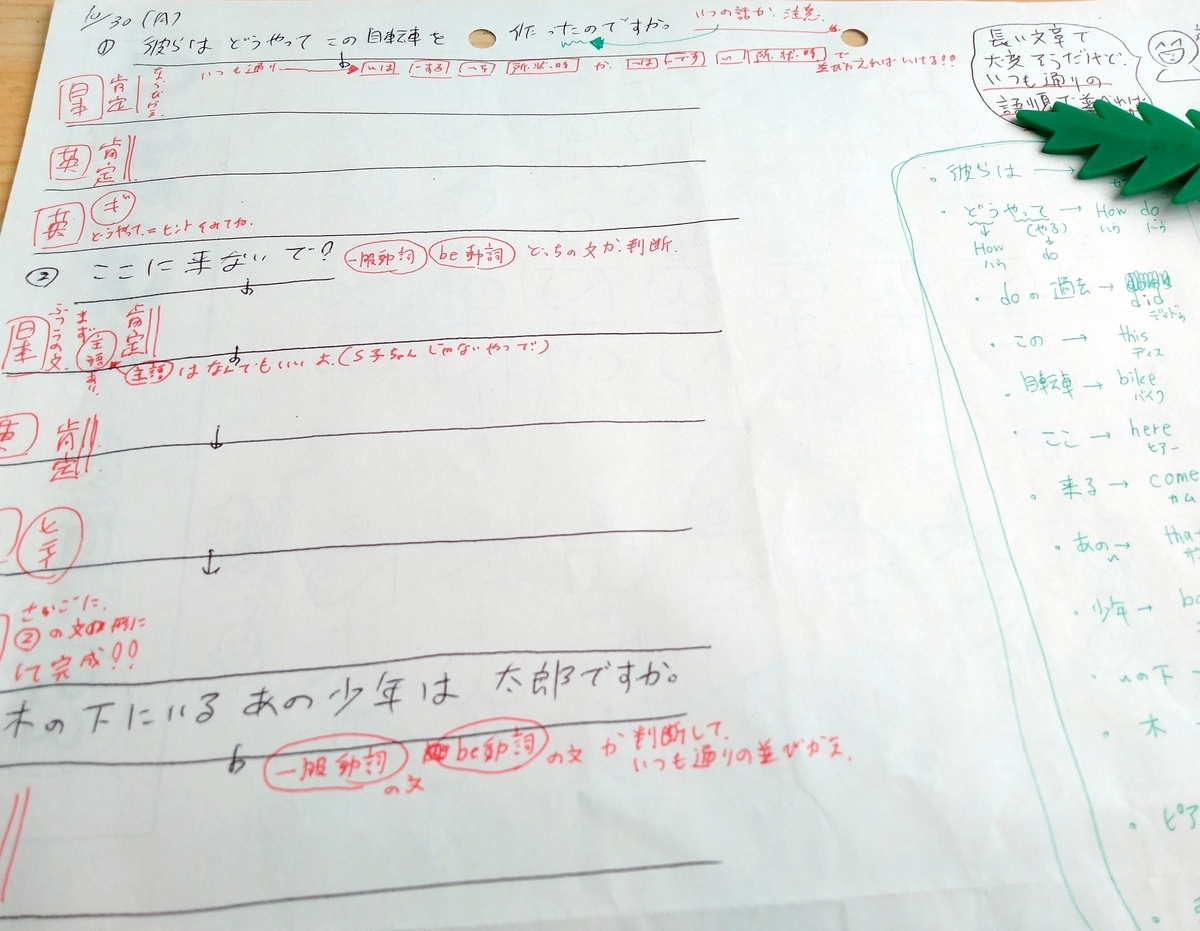 10/30(月)
① 彼らは どうやって この 自転車を 作ったのですか。
いつの話か 注意.
日本 肯定 ならびかえ いつも通り → 〜は 〜する 〜を 所.状.時 か 〜は 〜です 〜 所.状.時 で
並びかえればいける!!
英 肯定
英 ギ
どうやって = ヒントをみてね.
② ここに 来ないで? 一般動詞 be動詞 どっちの文か判断.
日本 ふつうの文. まず 主語 あり. 肯定
主語 はなんでもいいよ.(S子ちゃんじゃないやつで)
英 肯定
ヒ定
さいごに.
②の文の形に
して完成!!
木の下にいる あの少年は 太郎ですか。
一般動詞 の文 be動詞 の文 か 判断して.
いつも通りの並びかえ.
長い文章で
大変そうだけど.
いつも通りの
語順で並べれば
・彼らは →
・どうやって → How do
ハウ ドゥ
↓ (やる)
How ↓
ハウ do
・doの過去 → did
ディドゥ
・この → this
ディス
・自転車 → bike
バイク
・ここ → here
ヒアー
・来る → come
カム
・あの →
・少年 →
・〜の下 →
・木
・ピア